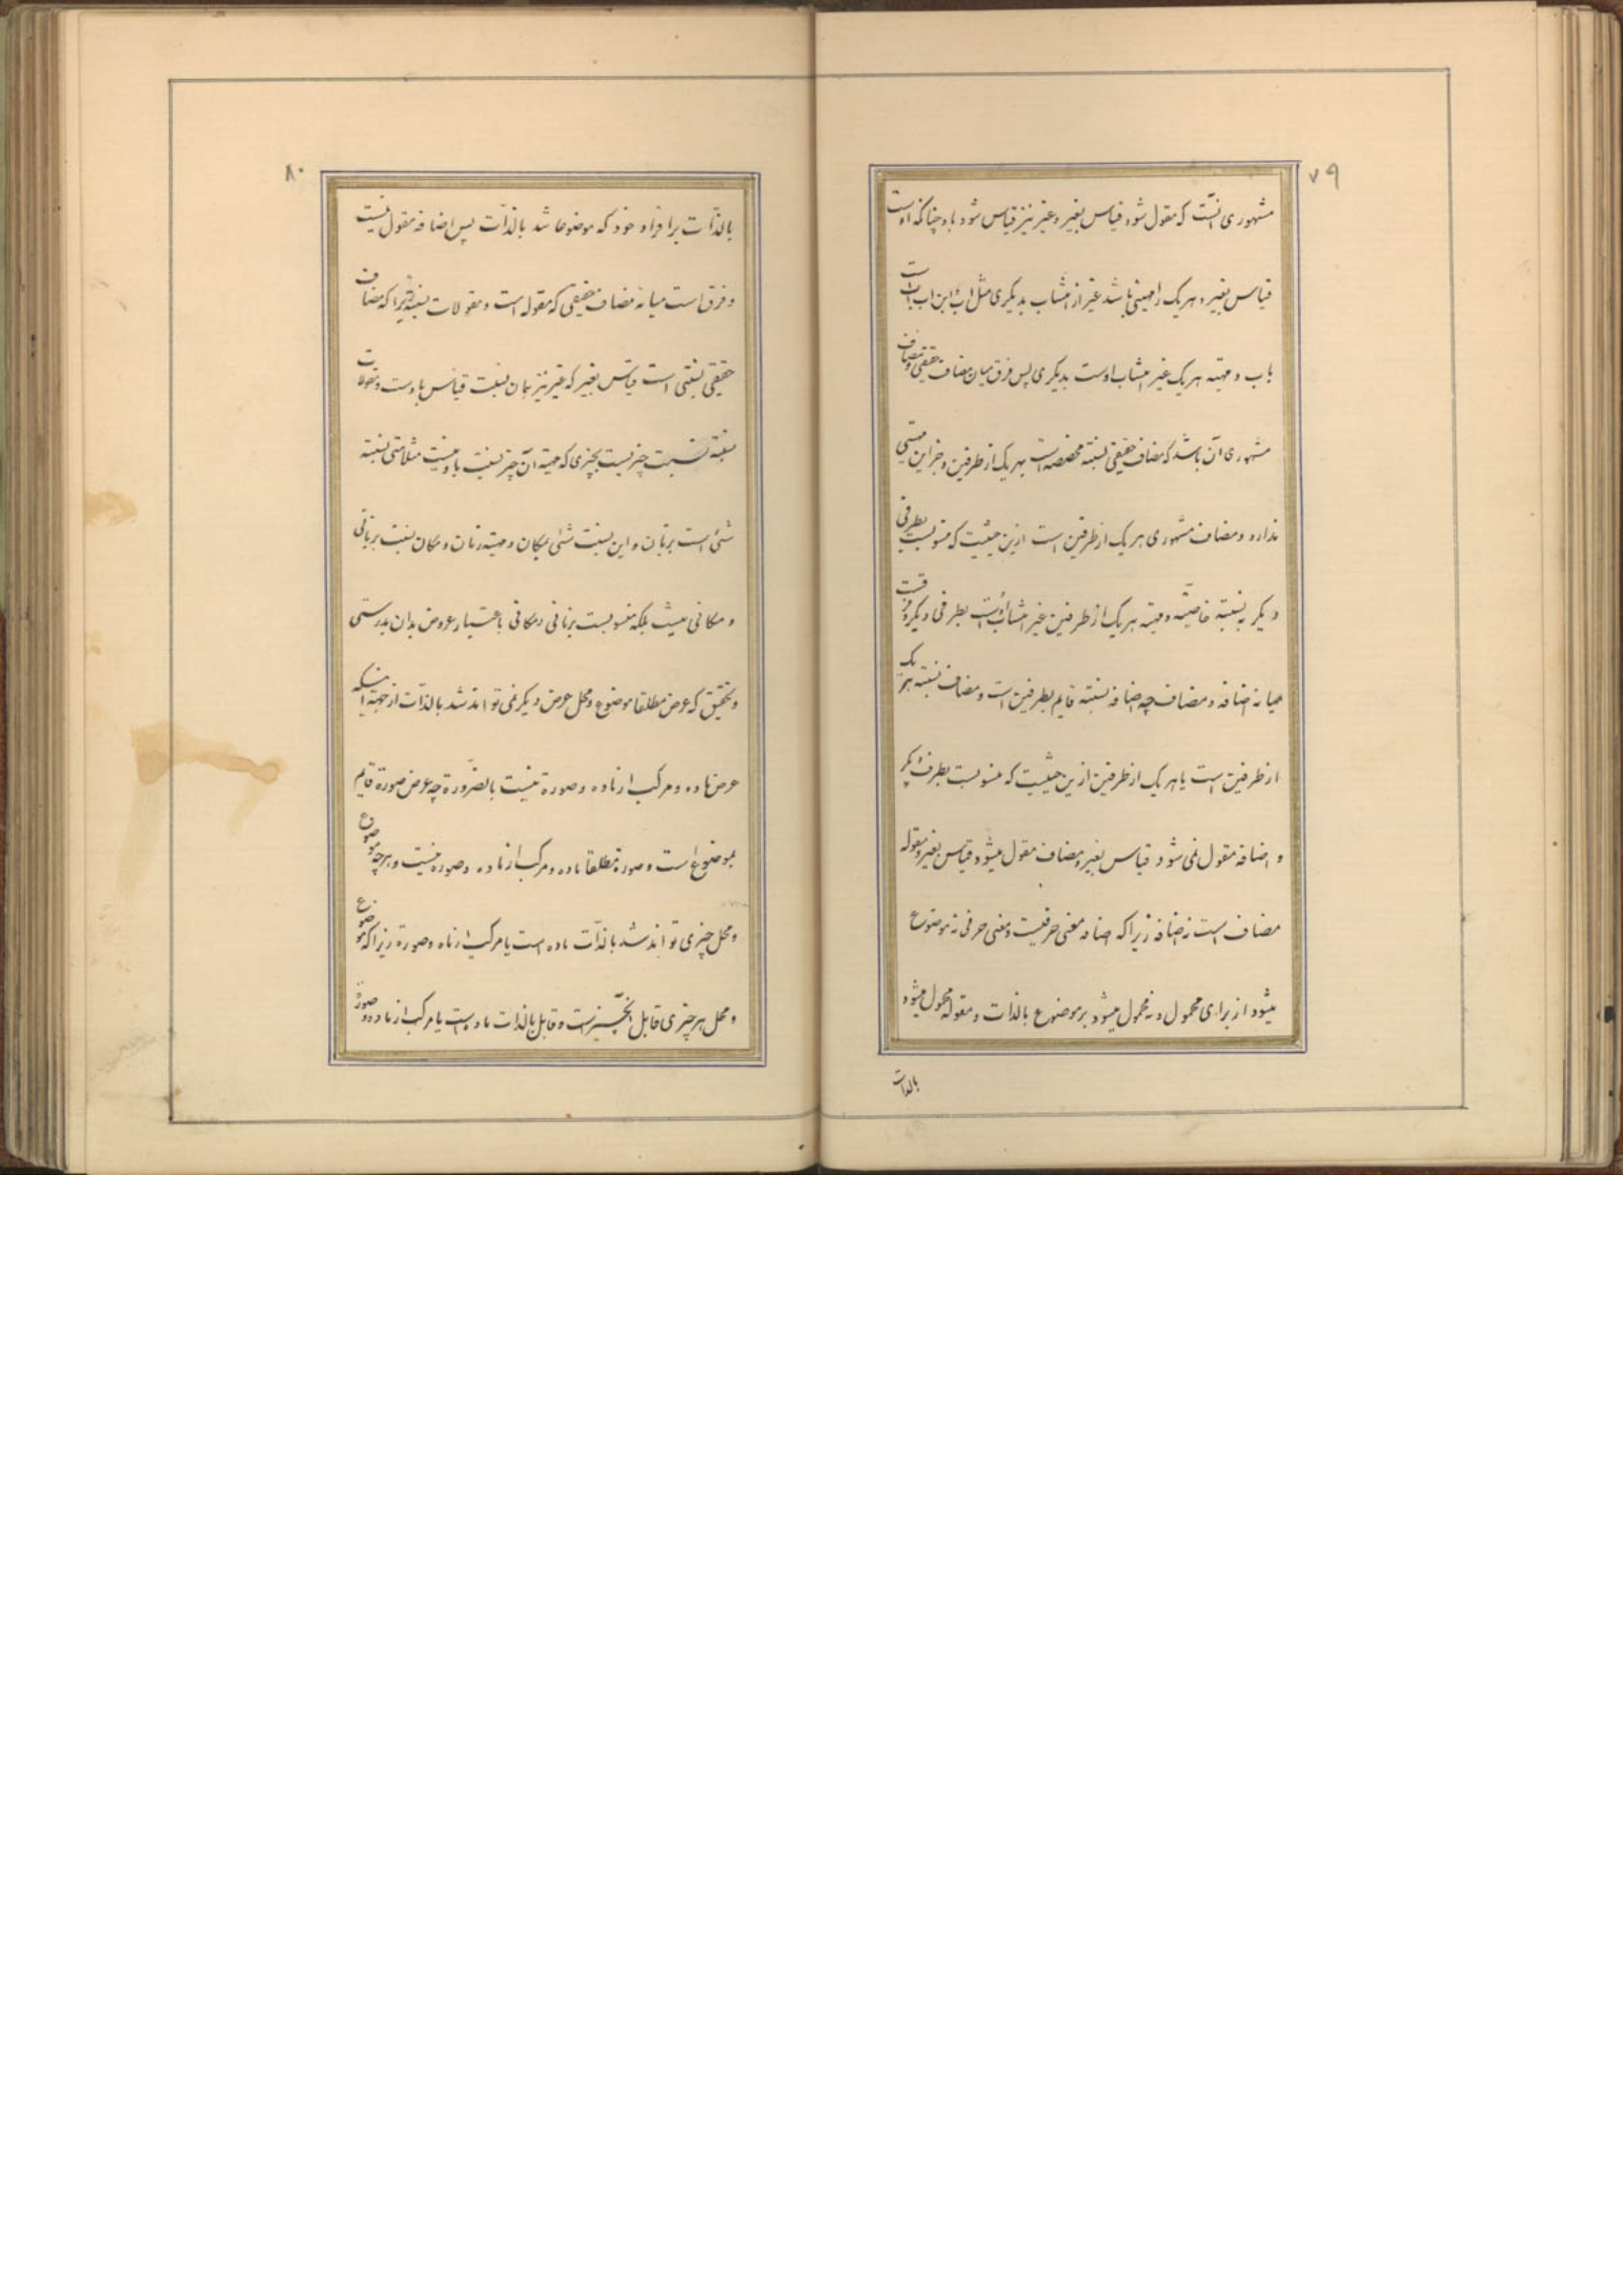 ۷۹
مشهوری آنست که مقول شود قیاس بغیر و غیر نیز قیاس شود باو چنانکه اوست
قیاس بغیر و هر یک را مهیتی باشد غیر از انتساب بدیگری مثل اب و ابن اب ابن است
باب و مهیته هر یک غیر انتساب اوست بدیگری پس فرق میان مضاف حقیقی و مضاف
مشهوری آن باشد که مضاف حقیقی نسبته مختصه است بهر یک از طرفین و جز این مهیتی
ندارد و مضاف مشهوری هر یک از طرفین است ازین حیثیت که منسوبست بطرفی
دیگر به نسبته خاصّه و مهیته هر یک از طرفین غیر انتساب اوست بطرفی دیگر و فرقست
میانه اضافه و مضاف چه اضافه نسبته قایم بطرفین است و مضاف نسبته هر یک
از طرفین است یا هر یک از طرفین ازین حیثیت که منسوبست بطرف دیگر
و اضافه مقول نمی شود قیاس بغیر و مضاف مقول میشود قیاس بغیر و مقوله
مضاف است نه اضافه زیرا که اضافه معنی حرفیست و معنی حرفی نه موضوع
میشود از برای محمول و نه محمول میشود بر موضوع بالذات و مقوله محمول میشود
بالذات
۸۰
بالذّات بر افراد خود که موضوعا شد بالذّات پس اضافه مقول نیست
و فرق است میانه مضاف حقیقی که مقوله است و مقولات نسبیّه زیرا که مضاف
حقیقی نسبتی است قیاس بغیر که غیر نیز بهمان نسبت قیاس باوست و مقولات
نسبیّه نسبت چیزیست بچیزی که مهیته آن چیز نسبت باو نیست مثلا متی نسبته
شئ است بزمان و این نسبت شئ بمکان و مهیته زمان و مکان نسبت بزمانی
و مکانی نیست بلکه منسوبست بزمانی و مکانی باعتبار عروض بدان بدرستی
و تحقیق که عرض مطلقا موضوع و محل عرض دیگر نمی تواند شد بالذّات از جهته آنکه
عرض ماده و مرکب از ماده و صورة نیست بالضّرورة چه عرض صورة قایم
بموضوع است و صورة مطلقا ماده و مرکب از ماده و صوره نیست و هر چه موضوع
و محل چیزی تواند شد بالذّات ماده است یا مرکب از ماده و صورة زیرا که موضوع
و محل هر چیزی قابل آنچیز است و قابل بالذات ماده است یا مرکب از ماده و صورة